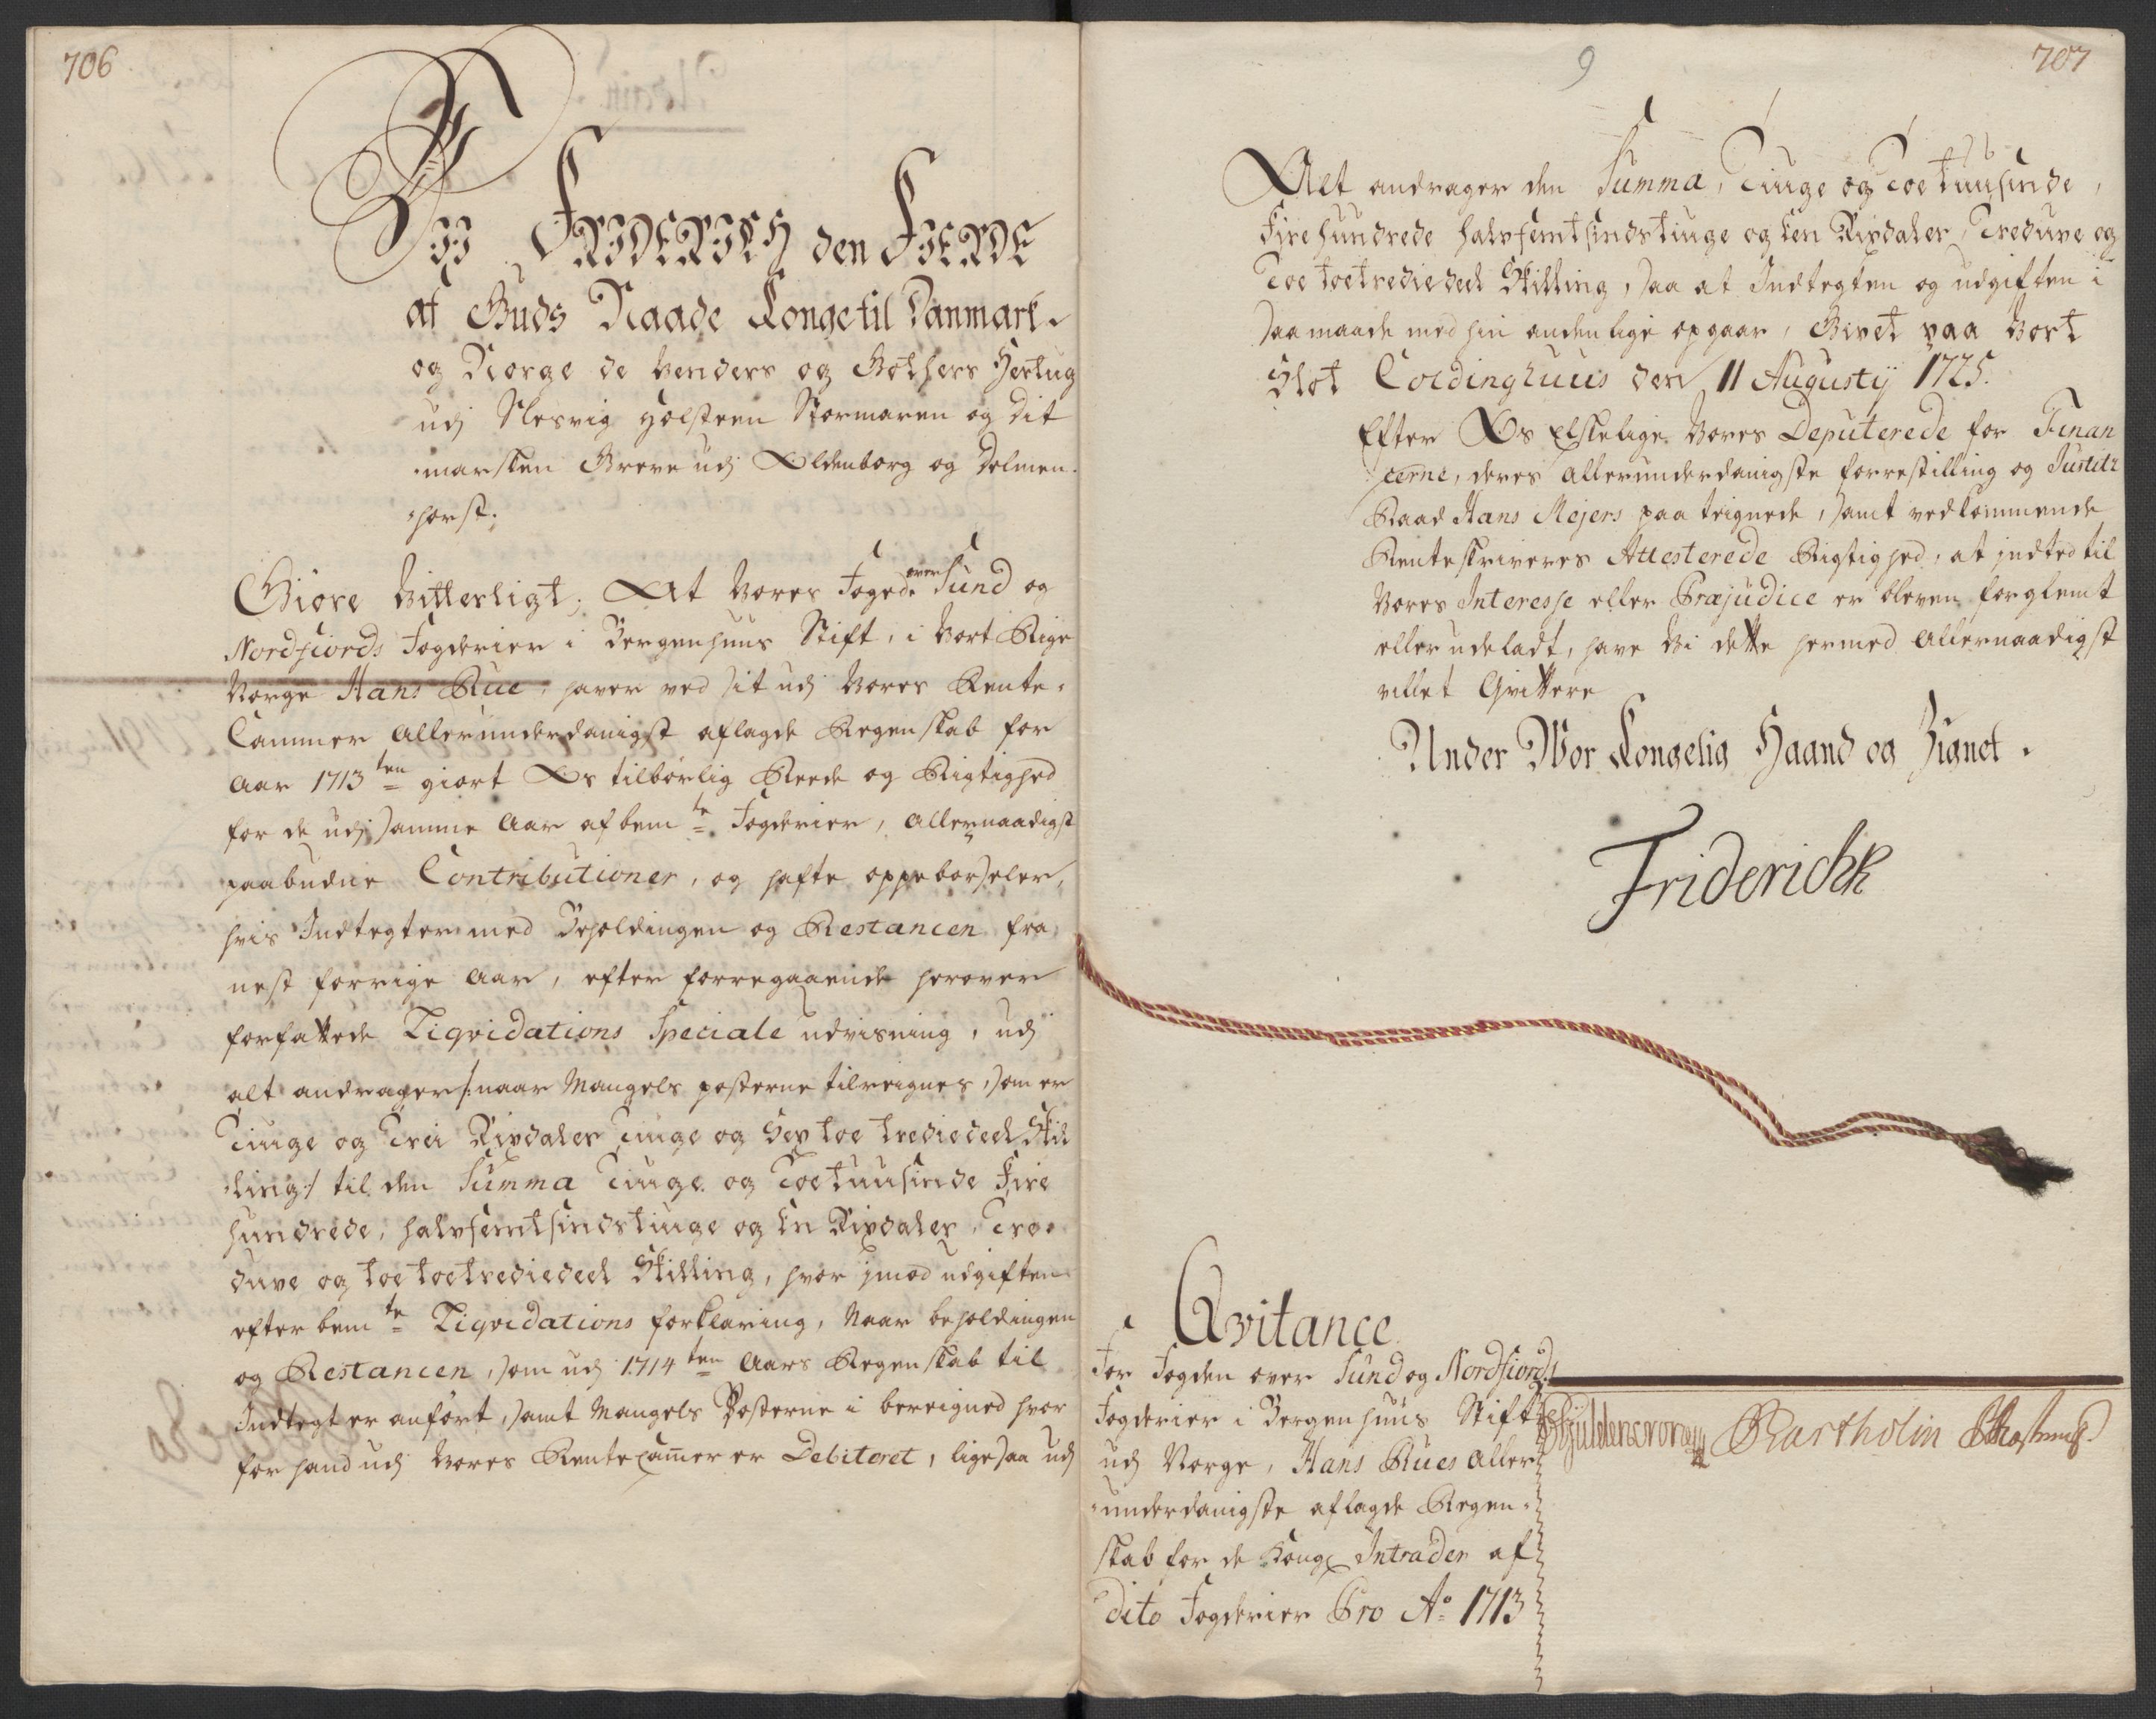 706
Vii FRIDERICH den FIERDE
af Guds Naade Konge til Danmark
og Norge de Venders og Gothers Hertug
udj Slesvig Holsteen Stormaren og Dit
marsken Greve udj Oldenborg og Delmen
horst.
Giøre Vitterligt, At Vores Foged over Sund og
Nordfiords Fogderier i Bergenhuus Stift, i Vort Rige
Norge Hans Rue, haver ved sit udj Vores Rente-
Cammer allerunderdanigst aflagde Regenskab for
Aar 1713ten giort Os tilbørlig Reede og Rigtighed
for de udj samme Aar af bemte Fogderier, allernaadigst
paabudne Contributioner, og hafte oppebørseler,
hvis Indtegter med Beholdingen og Restancen fra
nest forrige Aar, efter forregaaende herover
forfattede Liqvidations Speciale udvisning, udj
alt andrager /: naar Mangels posterne tilreignes, som er
Tiuge og Trei Rixdaler Tiuge og Sex toe trediedeel Skil
ling :/ til den Summa Tiuge og Toetuusinde Fire
hundrede, halvfemtsindstiuge og En Rixdaler, Tre
duve og toe toetrediedeel Skilling, hvor jmod udgiften
efter bemte Liqvidations forklaring, Naar beholdingen
og Restancen, som udj 1714ten Aars Regenskab til
Indtegt er anført, samt Mangels Posterne i bereigned hvor
for hand udj Vores Rentecammer er Debiteret, ligesaa udj
9
707
Alt andrager den Summa, Tiuge og Toetuusinde,
Firehundrede halvfemtsindstiuge og Een Rixdaler, Treduve og
Toe toetrediedeel Skilling, saa at Indtegten og udgiften i
saa maade med hin anden lige opgaar, Givet paa Vort
Slot Coldinghuus den 11 Augustij 1725.
Efter Os Elskelige Vores Deputerede for Finan
cerne, deres allerunderdanigste forrestilling og Justitz
Raad Hans Mejers paa teignede, samt vedkommende
Renteskriveres Attesterede Rigtighed, at jndted til
Vores Interesse eller Præjudice er bleven forglemt
eller udeladt, have Vi dette hermed allernaadigst
villet Qvittere
Under Vor Kongelig Haand og Zignet.
Friderich R
Qvitance
For Fogden over Sund og Nordfiords
Fogderier i Bergenhuus Stift
udj Norge, Hans Rues aller
underdanigste aflagde Regen-
skab for de Kongl Intrader af
dito Fogderier Pro Ao 1713
Güldencrone Bartholin